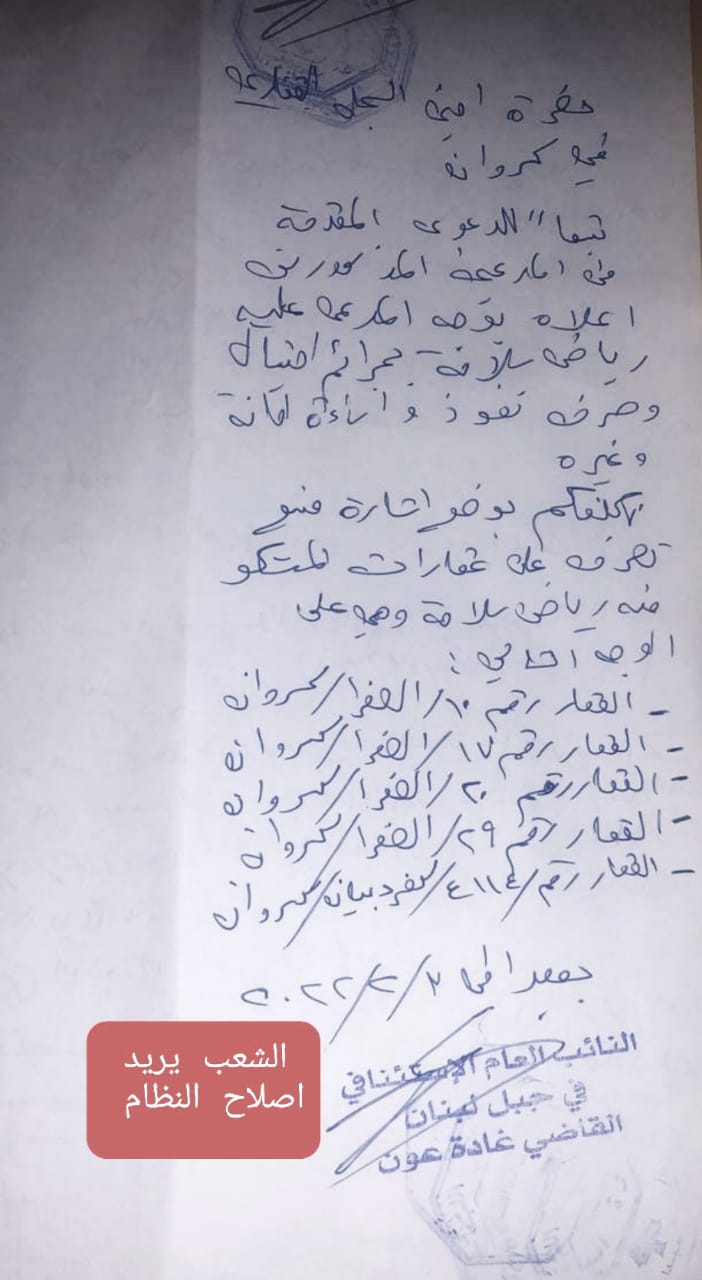 حضرة امين السجل العقاري
في كسروان
تبعا" للدعوى المقدمة
من المدعين المذكورين
اعلاه بوجه المدعى عليه
رياض سلامة بجرائم احتيال
وصرف نفوذ واساءة امانة
وغيره
نكلفكم بوضع اشارة منع
تصرف على عقارات المشكو
منه رياض سلامة وهي على
الوجه التالي :
- العقار رقم ١٠/الصفرا/كسروان
- العقار رقم ١٧/الصفرا/كسروان
- العقار رقم ٢٠/الصفرا/كسروان
- العقار رقم ٢٩/الصفرا/كسروان
- العقار رقم/٤١١٤/كفردبيان/كسروان
بعبدا في ٣/٢/٢٠٢٢
النائب العام الإستئنافي
في جبل لبنان
القاضي غادة عون
الشعب يريد
اصلاح النظام